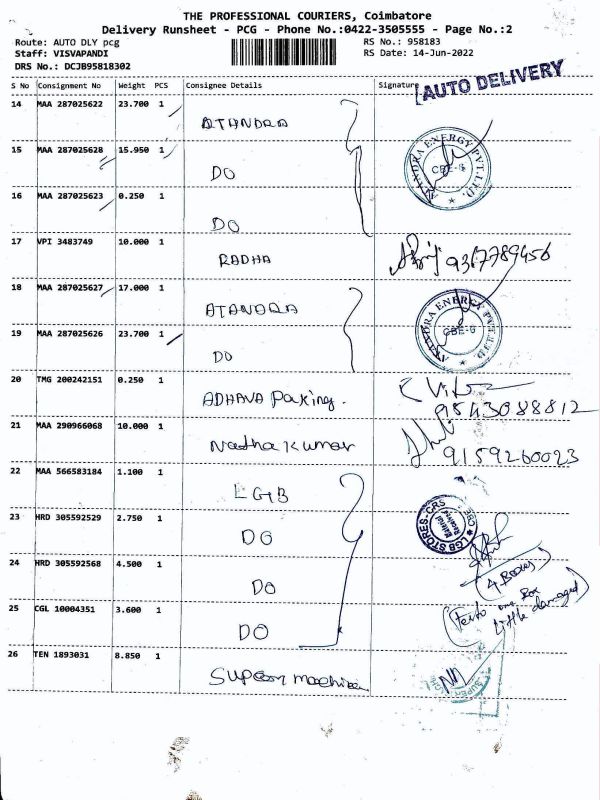 THE PROFESSIONAL COURIERS, Coimbatore
Delivery Runsheet - PCG - Phone No.:0422-3505555 - Page No.:2
Route: AUTO DLY pcg RS No.: 958183
Staff: VISVAPANDI RS Date: 14-Jun-2022
DRS No.: DCJB95818302
AUTO DELIVERY
S No Consignment No Weight PCS Consignee Details Signature
14 MAA 287025622 23.700 1
ATANDRA
15 MAA 287025628 15.950 1
DO
ATANDRA ENERGY PVT.LTD.
CBE-6
16 MAA 287025623 0.250 1
DO
17 VPI 3483749 10.000 1
RADHA
9367789456
18 MAA 287025627 17.000 1
ATANDRA
19 MAA 287025626 23.700 1
DO
ATANDRA ENERGY PVT.LTD.
CBE-6
20 TMG 200242151 0.250 1
ADHAVA Paking.
9543088812
21 MAA 290966068 10.000 1
Natha Kumar
9159260023
22 MAA 566583184 1.100 1
LGB
23 HRD 305592529 2.750 1
DO
LGB STORES-CRS
Material
Received
CBE
24 HRD 305592568 4.500 1
DO
4. Boxes
25 CGL 10004351 3.600 1
DO
one Box
Little damaged
26 TEN 1893031 8.850 1
SUPER